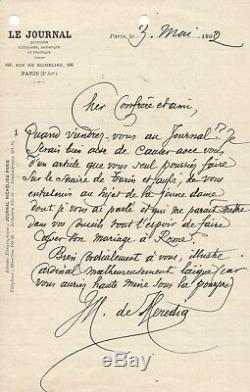 LE JOURNAL
QUOTIDIEN
LITTÉRAIRE, ARTISTIQUE
ET POLITIQUE
100, RUE DE RICHELIEU, 100
PARIS (2e Arrt)
Paris, le 3 Mai 1902
Cher Confrère et ami,
Quand viendrez-vous au Journal? Je
serais bien aise de causer avec vous
d'un article que vous seul pourriez faire
sur le Suaire de Turin et aussi de vous
entretenir au sujet de la jeune dame
dont je vous ai parlé et qui me paraît mettre
dans vos conseils tout l'espoir de faire
casser son mariage à Rome.
Bien cordialement à vous, illustre
cardinal malheureusement laïque (car
vous auriez haute mine sous la pourpre)
JM. de Heredia